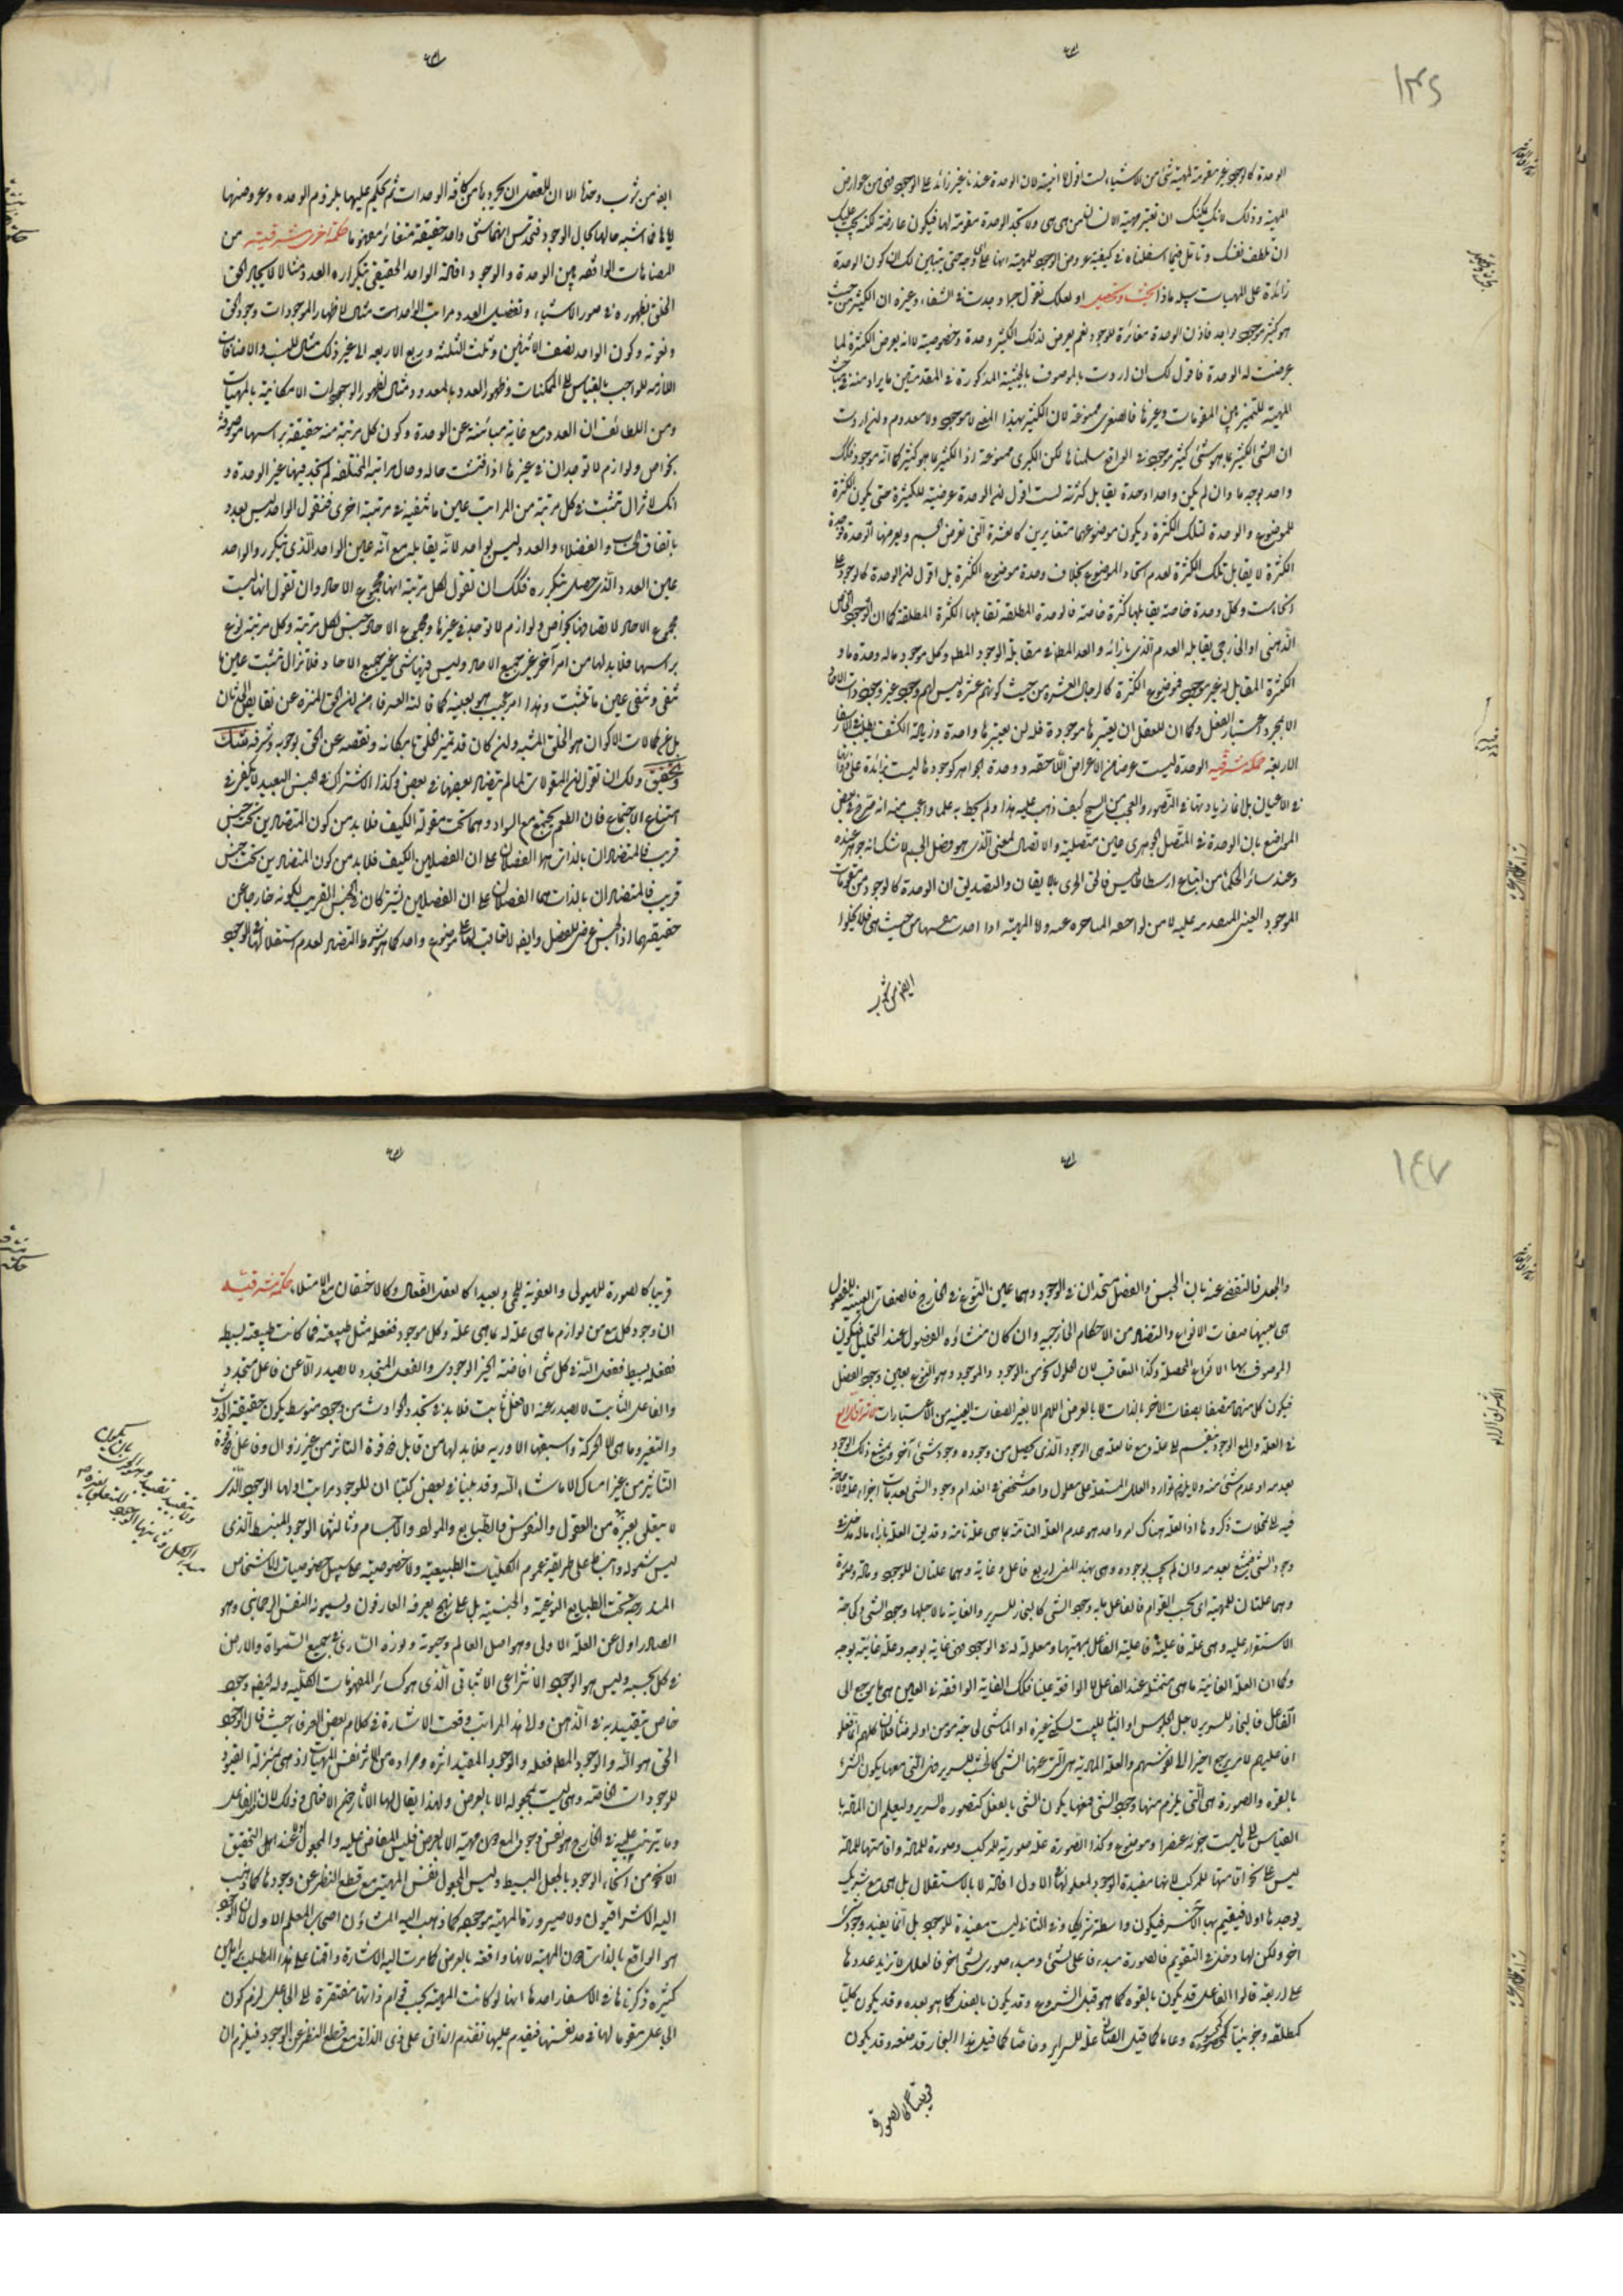 ١٤٦
الوحدة كالوجود غير مقومة لمهية شئ من الاشياء لست اقول لانية لان الوحدة عندنا غير زائدة على الوجود فهى من عوارض
المهية وذلك لانك يمكنك ان تعتبر مهية الانسان من هى هى ولا تجد الوحدة مقومة لها فيكون عارضة لكنه يجب عليك
ان تلطف نفسك وتتأمل فيما اسلفناه فى كيفية عروض الوجود للمهية انها على اى وجه حتى يتبين لك ان كون الوحدة
زائدة على المهيات بماذا بحث وتحصيل او لعلك تقول حسبما وجدت فى الشفاء وغيره ان الكثير من حيث
هو كثير موجود واحد فاذن الوحدة مغائرة للوجود نعم يعرض لذلك الكثير وحدة وخصوصية لا انه يعرض الكثرة لما
عرضت له الوحدة فاقول لك ان اردت بالموصوف بالحيثية المذكورة فى المقدمتين ما يراد منه فى مباحث
المهية للتميز بين المقومات وغيرها فالصغرى ممنوعة لان الكثير بهذا المعنى لا موجود ولا معدوم وان اردت
ان الشئ الكثير بما هو شئ كثير موجود فى الواقع سلمناها لكن الكبرى ممنوعة اذ الكثير بما هو كثير كما انه موجود فذلك
واحد بوجه ما وان لم يكن واحدا وحدة يقابل كثرته لست اقول ان الوحدة عرضية للكثيرة حتى يكون الكثرة
للموضوع والوحدة لتلك الكثرة ويكون موضوعهما متغايرين كالعشرة التى تعرض لجسم ويعرضها الوحدة فوحدة
الكثرة لا يقابل تلك الكثرة لعدم اتحاد الموضوع بخلاف وحدة موضوع الكثرة بل اقول ان الوحدة كالوجود على
انحاء شتى وكل وحدة خاصة يقابلها كثرة خاصة فالوحدة المطلقة تقابلها الكثرة المطلقة كما ان الوجود الخاص
الذهنى او الخارجى يقابله العدم الذى بازائه والعدم المطلق فى مقابلة الوجود المطلق وكل موجود ماله وحدة ما و
الكثرة المقابل له غير موجود فموضوع الكثرة كالرجال العشرة من حيث كونهم عشرة ليس لهم وجود غير وجودات الاحاد
الا بمجرد اعتبار العقل وكما ان للعقل ان يعتبرها موجودة فله ان يعتبرها واحدة وزيادة الكشف يطلب فى الاسفار
الاربعة حكمة مشرقية الوحدة ليست عرضا من الاعراض اللاحقة ووحدة الجواهر كوجودها ليست زائدة على ذواتها
فى الاعيان بل انما زيادتها فى التصور والعجب من الشيخ كيف ذهب عليه هذا ولم يحط به علما واعجب منه انه صرح فى بعض
المواضع بان الوحدة فى المتصل الجوهرى عين متصليته والاتصال لمعنى الذى هو فصل الجسم لا شك انه جوهر عنده
وعند سائر الحكماء من اتباع ارسطاطاليس فالحق الحرى بالايقان والتصديق ان الوحدة كالوجود من مقومات
الموجود العينى المتقدمة عليه لا من لواحقه المتاخرة عنه ولا المهية اذا اخذت نفسها من حيث هى فلا يخلو
ايضا من شوب
ايضا من شوب وحدة الا ان للعقل ان يجردها من كافة الوحدات ثم يحكم عليها بلزوم الوحدة وعروضها
لها فما اشبه حالها بحال الوجود فتحدس انهما شئ واحد حقيقة متغائر مفهوما حكمة اخرى مشرقية من
المضاهات الواقعة بين الوحدة والوجود افادة الواحد الحقيقى بتكراره العدد مثالا لايجاد الحق
الخلق بظهوره فى صور الاشياء وتفصيل العدد مراتب الواحد مثال لاظهار الموجودات وجود الحق
ونعوته وكون الواحد نصف الاثنين وثلث الثلثة وربع الاربعة الى غير ذلك مثال للنسب والاضافات
اللازمة للواجب بالقياس الى الممكنات وظهور العدد بالمعدود مثال لظهور الوجودات الامكانية بالمهيات
ومن اللطائف ان العدد مع غاية مبائنته عن الوحدة وكون كل مرتبة منه حقيقة براسها موصوفة
بخواص ولوازم لا توجدان فى غيرها اذا فتشت حاله وحال مراتبه المختلفة لم تجد فيها غير الوحدة و
انك لا تزال تثبت فى كل مرتبة من المراتب عين ما تنفيه فى مرتبة اخرى فتقول الواحد ليس بعدد
باتفاق الحساب والفضلاء والعدد ليس بواحد لانه يقابله مع انه عين الواحد الذى يتكرر والواحد
عين العدد الذى حصل بتكرره فلك ان تقول لكل مرتبة انها مجموع الاحاد وان تقول انها ليست
مجموع الاحاد لاتصافها بخواص ولوازم لا توجد فى غيرها ومجموع الاحاد جنس لكل مرتبة وكل مرتبة نوع
براسها فلا بد لها من امر آخر غير جميع الاحاد وليس فيها شئ غير جميع الاحاد فلا تزال تثبت عين ما
تنفى وتنفى عين ما تثبت وهذا امر عجيب هو بعينه كما قالته العرفاء من ان الحق المنزه عن نقايص الحدثان
بل عن كمالات الاكوان هو الخلق المشبه وان كان قد تميز الخلق بامكانه ونقصه عن الحق بوجوبه وشرفه شك
وتحقيق ولك ان تقول ان المقولات لما لم يتضاد بعضها فى بعض وكذا الاشتراك فى الجنس البعيد لا يكفى فى
امتناع الاجتماع فان الطعم يجتمع مع السواد وهما تحت مقولة الكيف فلا بد من كون المتضادين تحت جنس
قريب فالمتضادان بالذات هما الفصلان على ان الفصلين الكيف فلا بد من كون المتضادين تحت جنس
قريب فالمتضادان بالذات هما الفصلان على ان الفصلين يشتركان فى الجنس القريب لكونه خارجا عن
حقيقتهما اذ الجنس عرض للفصل وايضا لا تعاقب لهما على موضوع واحد كما هو شرط التضاد لعدم استقلالهما فى الوجود
١٤٧
والجملة فالتقصى عنه بان الجنس والفصل متحدان فى الوجود وهما عين النوع فى الخارج فالصفات العينية للفصول
هى بعينها صفات الانواع والتضاد من الاحكام الخارجية وان كان منشاؤه الفصول عند التحليل فيكون
الموصوف بها الانواع المحصلة وكذا التعاقب لان الحلول نحو من الوجود والموجود وهو النوع بعين وجود الفصل
فيكون كل منهما متصفا بصفات الاخر بالذات لا بالعرض اللهم الا بغير الصفات العينية من الاعتبارات الاشراق الرابع
فى العلة والمعلول الوجود ينقسم الى علة ومعلول فالعلة هى الوجود الذى يحصل من وجوده وجود شئ آخر ويمتنع ذلك الوجود
بعدمه او عدم شئ منه ولا يلزم توارد العلل المستقلة على معلول واحد شخصى فى انعدام وجود الشئ بعدمات اجزاء علته ولا حاجة
فيه الى تمحلات ذكروها اذ العلة هناك امر واحد هو عدم العلة التامة بما هى علة تامة وقد يق العلة بازاء ماله مدخل فى
وجود الشئ فيمتنع بعدمه وان لم يجب بوجوده وهى بهذا المعنى اربع فاعل وغاية وهما علتان للوجود ومادة وصورة
وهما علتان للمهية اى بحسب القوام فالفاعل ما به وجود الشئ كالنجار للسرير والغاية ما لاجلها وجود الشئ كحاجة
الاستقرار عليه وهى علة فاعلية لفاعلية الفاعل بمهيتها ومعلولة له فى الوجود فهى غاية بوجه وعلة غائية بوجه
وكما ان العلة الغائية ما هى متمثلة عند الفاعل لا الواقعة عينا فذلك الغاية الواقعة فى العين هى ما يرجع الى
الفاعل فالنجار للسرير لاجل الجلوس او البناء للبيت ليسكن غيره او الماشى لحاجة مؤمن او لرضا فلان كلهم انما فعلوا
افاعيلهم لما يرجع اخيرا الى نفوسهم والعلة المادية هى التى عنها الشئ كالخشب للسرير فهى التى معها يكون الشئ
بالقوة والصورة هى التى يلزم منها وجود الشئ فمعها يكون الشئ بالفعل كتصورة السرير وليعلم ان المادة با
القياس الى ما ليست جزؤه عنصرا وموضوع وكذا الصورة علة صورية للمركب وصورة للمادة واقامتها للمادة
ليس على نحو اقامتها للمركب لانها مفيدة الوجود لمعلولها الاول افادة لا بالاستقلال بل هى مع شريك
يوجدها اولا فيقيم بها الاخر فيكون واسطة شريكا وفى الثانى ليست مفيدة للوجود بل انما يفيد وجوده شئ
اخر ولكن لها دخل فى التقويم فالصورة مبدء فاعلى لشئ ومبدء صورى لشئ اخر فالعلل لا تزيد عددها
على اربعة قالوا الفاعل قد يكون بالقوة كما هو قبل الشروع وقد يكون بالفعل كما هو بعده وقد يكون كليا
كمطلقه وجزئيا كمخصوصه وعاما كما قيل الصانع علة للسرير وخاصا كما قيل هذا النجار قد صنعه وقد يكون
قريبا كالصورة
قريبا كالصورة للهيولى والعفونة للحمى وبعيدا كالعقل الفعال وكالاحتقان مع الامتلاء حكمة مشرقية
ان وجود كل معلول من لوازم ما هى علة له بما هى علة وكل موجود ففعله مثل طبيعته فما كانت طبيعته بسيطة
ففعله بسيط ففعل الله فى كل شئ افاضة الخير الوجودى والفعل المتجدد لا يصدر الا عن فاعل متجدد
والفاعل الثابت لا يصدر عنه الا فعل ثابت فلا بد فى تجدد الحوادث من وجود متوسط يكون حقيقته الحدوث
والتغير وما هى الا الحركة واسبقها الدورية فلا بد لها من قابل ذا قوة التاثر من غير زوال وفاعل ذا قوة
التاثير من غير امساك الا ما شاء الله وقد بينا فى بعض كتبنا ان للوجود مراتب اولها الوجود الذى
لا يتعلق بغيره من العقول والنفوس والطبايع والمواد والاجسام وثالثها الوجود المنبسط الذى
ليس شموله وانبساطه على طريقة عموم الكليات الطبيعية ولا خصوصيته على سبيل خصوصيات الاشخاص
المندرجة تحت الطبايع النوعية والجنسية بل على نهج يعرفه العارفون ويسمونه النفس الرحمانى وهو
الصادر اول عن العلة الاولى وهو اصل العالم وحيوته ونوره السارى فى جميع السموات والارض
فى كل بحسبه وليس هو الوجود الانتزاعى الاثباتى الذى هو كسائر المفهومات العقلية وله ايضا وجود
خاص يتقيد به فى الذهن ولا هذا المراتب وقعت الاشارة فى كلام بعض العرفاء حيث قال الوجود
الحق هو الله والوجود المطلق فعله والوجود المقيد اثره ومراده من الاثر نفس المهيات اذ هى بمنزلة القيود
للوجودات الخاصة وهى ليست مجعولة الا بالعرض ولهذا يقال لها الاثار من الافعال وذلك لان الفاعل
وما يترتب عليه فى الخارج هو نفس وجود المعلول لا مهيته الا بالعرض فليس للفاعل فعليه والمجعول عند اهل التحقيق
الا نحو من انحاء الوجود بالجعل البسيط وليس المجعول نفس المهية مع قطع النظر عن وجودها كما ذهب
اليه الاشراقيون ولا صيرورة المهية موجودة كما ذهب اليه المشاؤن اصحاب المعلم الاول لان الوجود
هو الواقع بالذات دون المهية لانها واقعة بالعرض كما مرت اليه الاشارة واقمنا على هذا المطلب براهين
كثيرة ذكرناها فى الاسفار احدها انها لو كانت المهية بحسب قوام ذاتها مفتقرة الى الجاعل لزم كون
الجاعل مقوما لها فى حد نفسها فيقدم عليها تقدم الذاتى على ذى الذاتى مع قطع النظر عن الوجود فيلزم ان